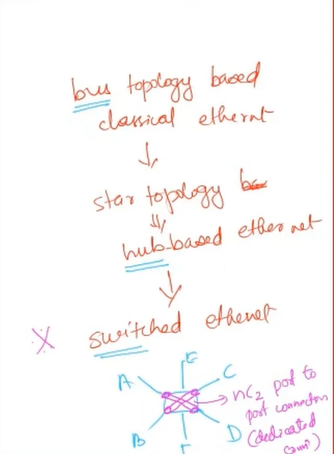 bus topology based
classical ethernt
star topology
hub-based ethernet
X switched ethernet
A E C
nC2 port to
port connection
B F D (dedicated